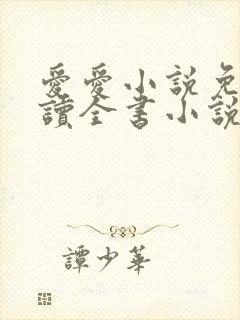 愛愛小説免
讀全書小説
譚少華